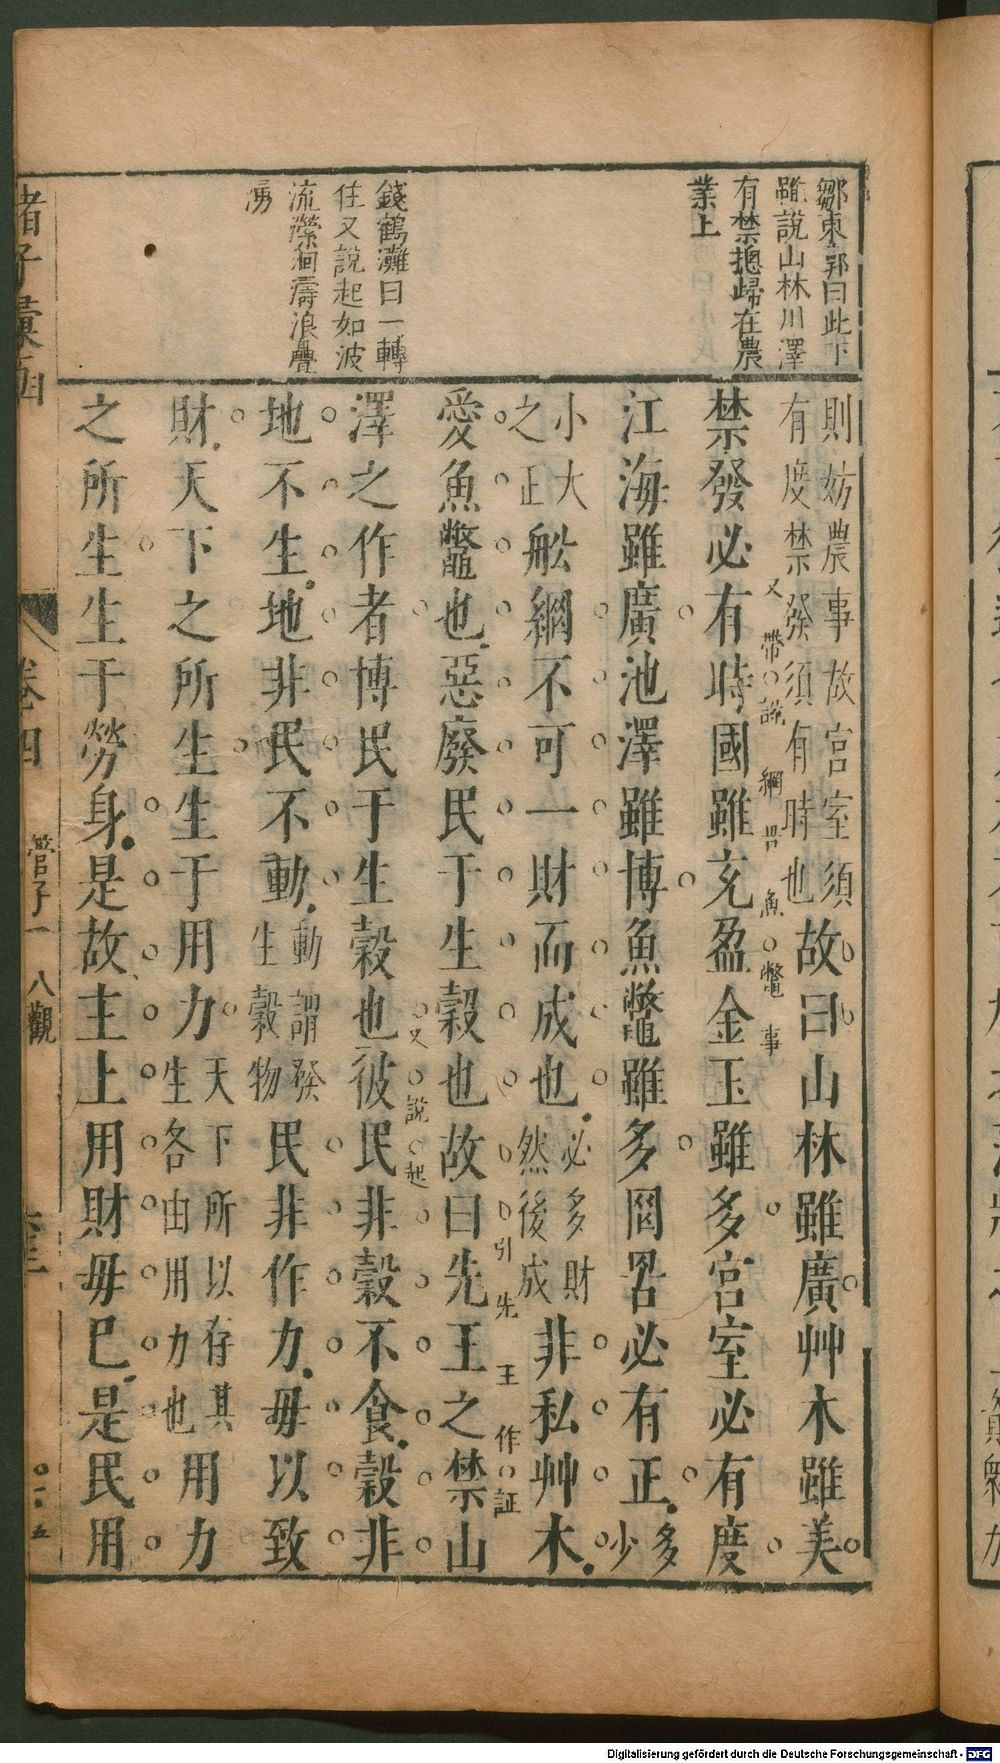 鄒東郭曰此下
雖說山林川澤
有禁摠歸在農
業上
錢鶴灘曰一轉
住又說起如波
流瀠洄濤浪疊
湧
則妨農事故宮室須
有度禁發須有時也
故曰山林雖廣艸木雖美
又帶說網罟魚鼈事
禁發必有時國雖充盈金玉雖多宮室必有度
江海雖廣池澤雖博魚鼈雖多罔罟必有正
多少
小大
之正
舩網不可一財而成也
必多財
然後成
非私艸木
愛魚鼈也惡廢民于生穀也故曰先王之禁山
引先王作証
澤之作者博民于生穀也彼民非穀不食穀非
又說起
地不生地非民不動
動謂發
生穀物
民非作力毋以致
財天下之所生生于用力
天下所以存其
生各由用力也
用力
之所生生于勞身是故主上用財毋已是民用
諸子彙函
卷四
管子一 八觀